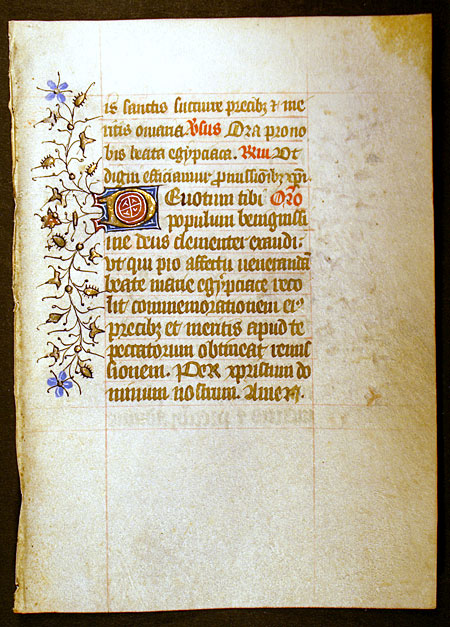 is sanctis succurre precibꝫ ⁊ me
ritis omnia Vsus Ora pro no
bis beata egypciaca. Rm̄ Vt
digni efficiamur ꝓmissioībꝫ xp̄i.
Deuotum tibi Oro
populum benignissi
me deus clementer exaudi.
vt qui pio affectu veneranda
beate marie egypciace reco
lit commemorationem ei⁹
precibꝫ et meritis apud te
peccatorum obtineat remis
sionem. PER xpristum do
minum nostrum. Amen.